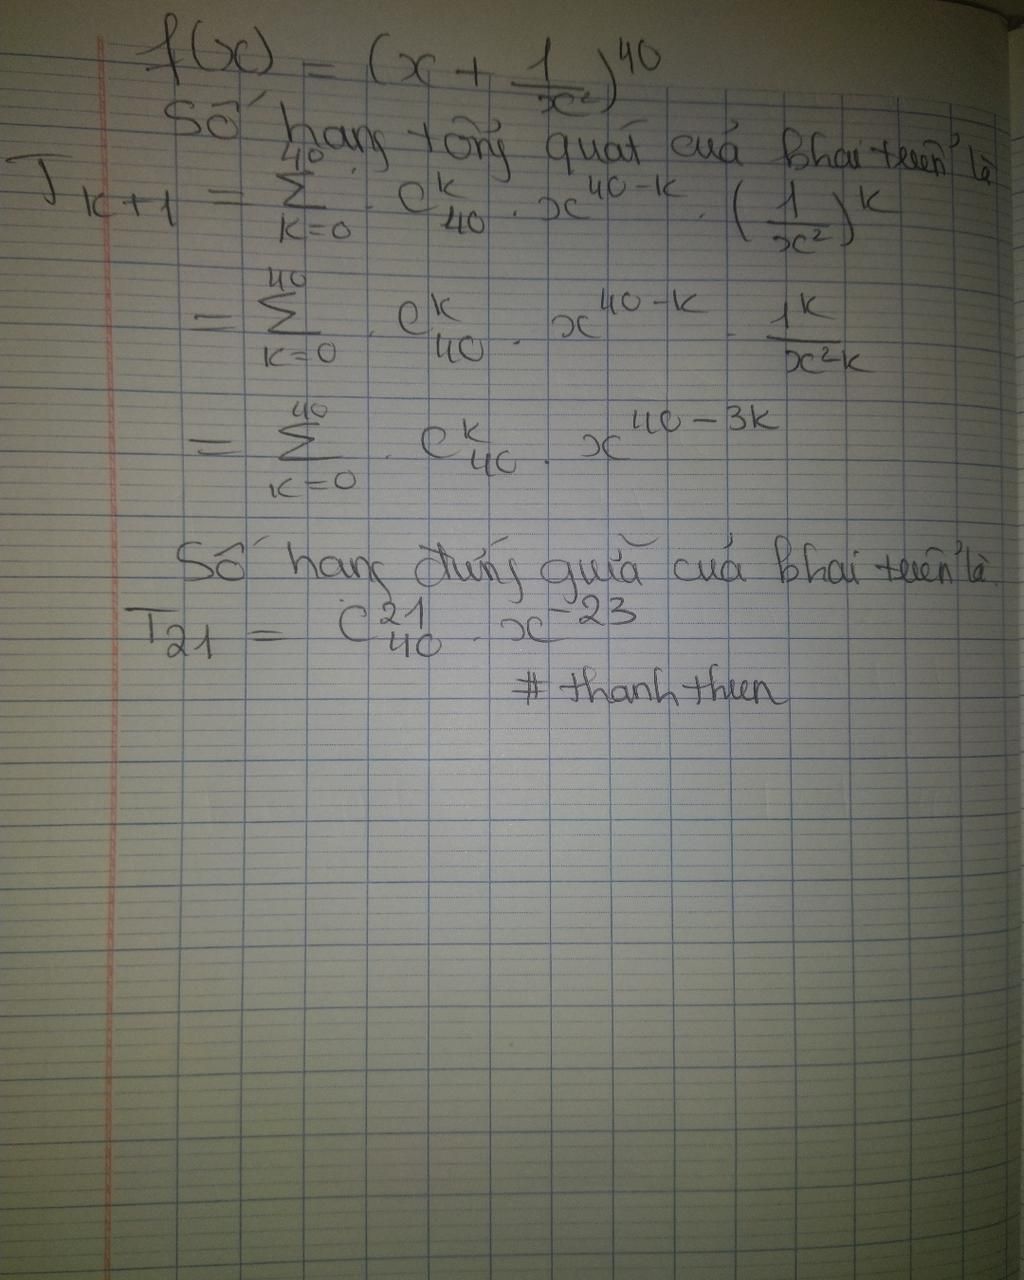 f(x) = (x + 1/x²)^40
Số hạng tổng quát của khai triển là
T_{k+1} = ∑_{k=0}^{40} . C_{40}^{k} . x^{40-k} . (1/x²)^k
= ∑_{k=0}^{40} . C_{40}^{k} . x^{40-k} . 1^k/x^{2k}
= ∑_{k=0}^{40} . C_{40}^{k} . x^{40-3k}
Số hạng đứng giữa của khai triển là
T_{21} = C_{40}^{21} . x^{-23}
# thanh thuen